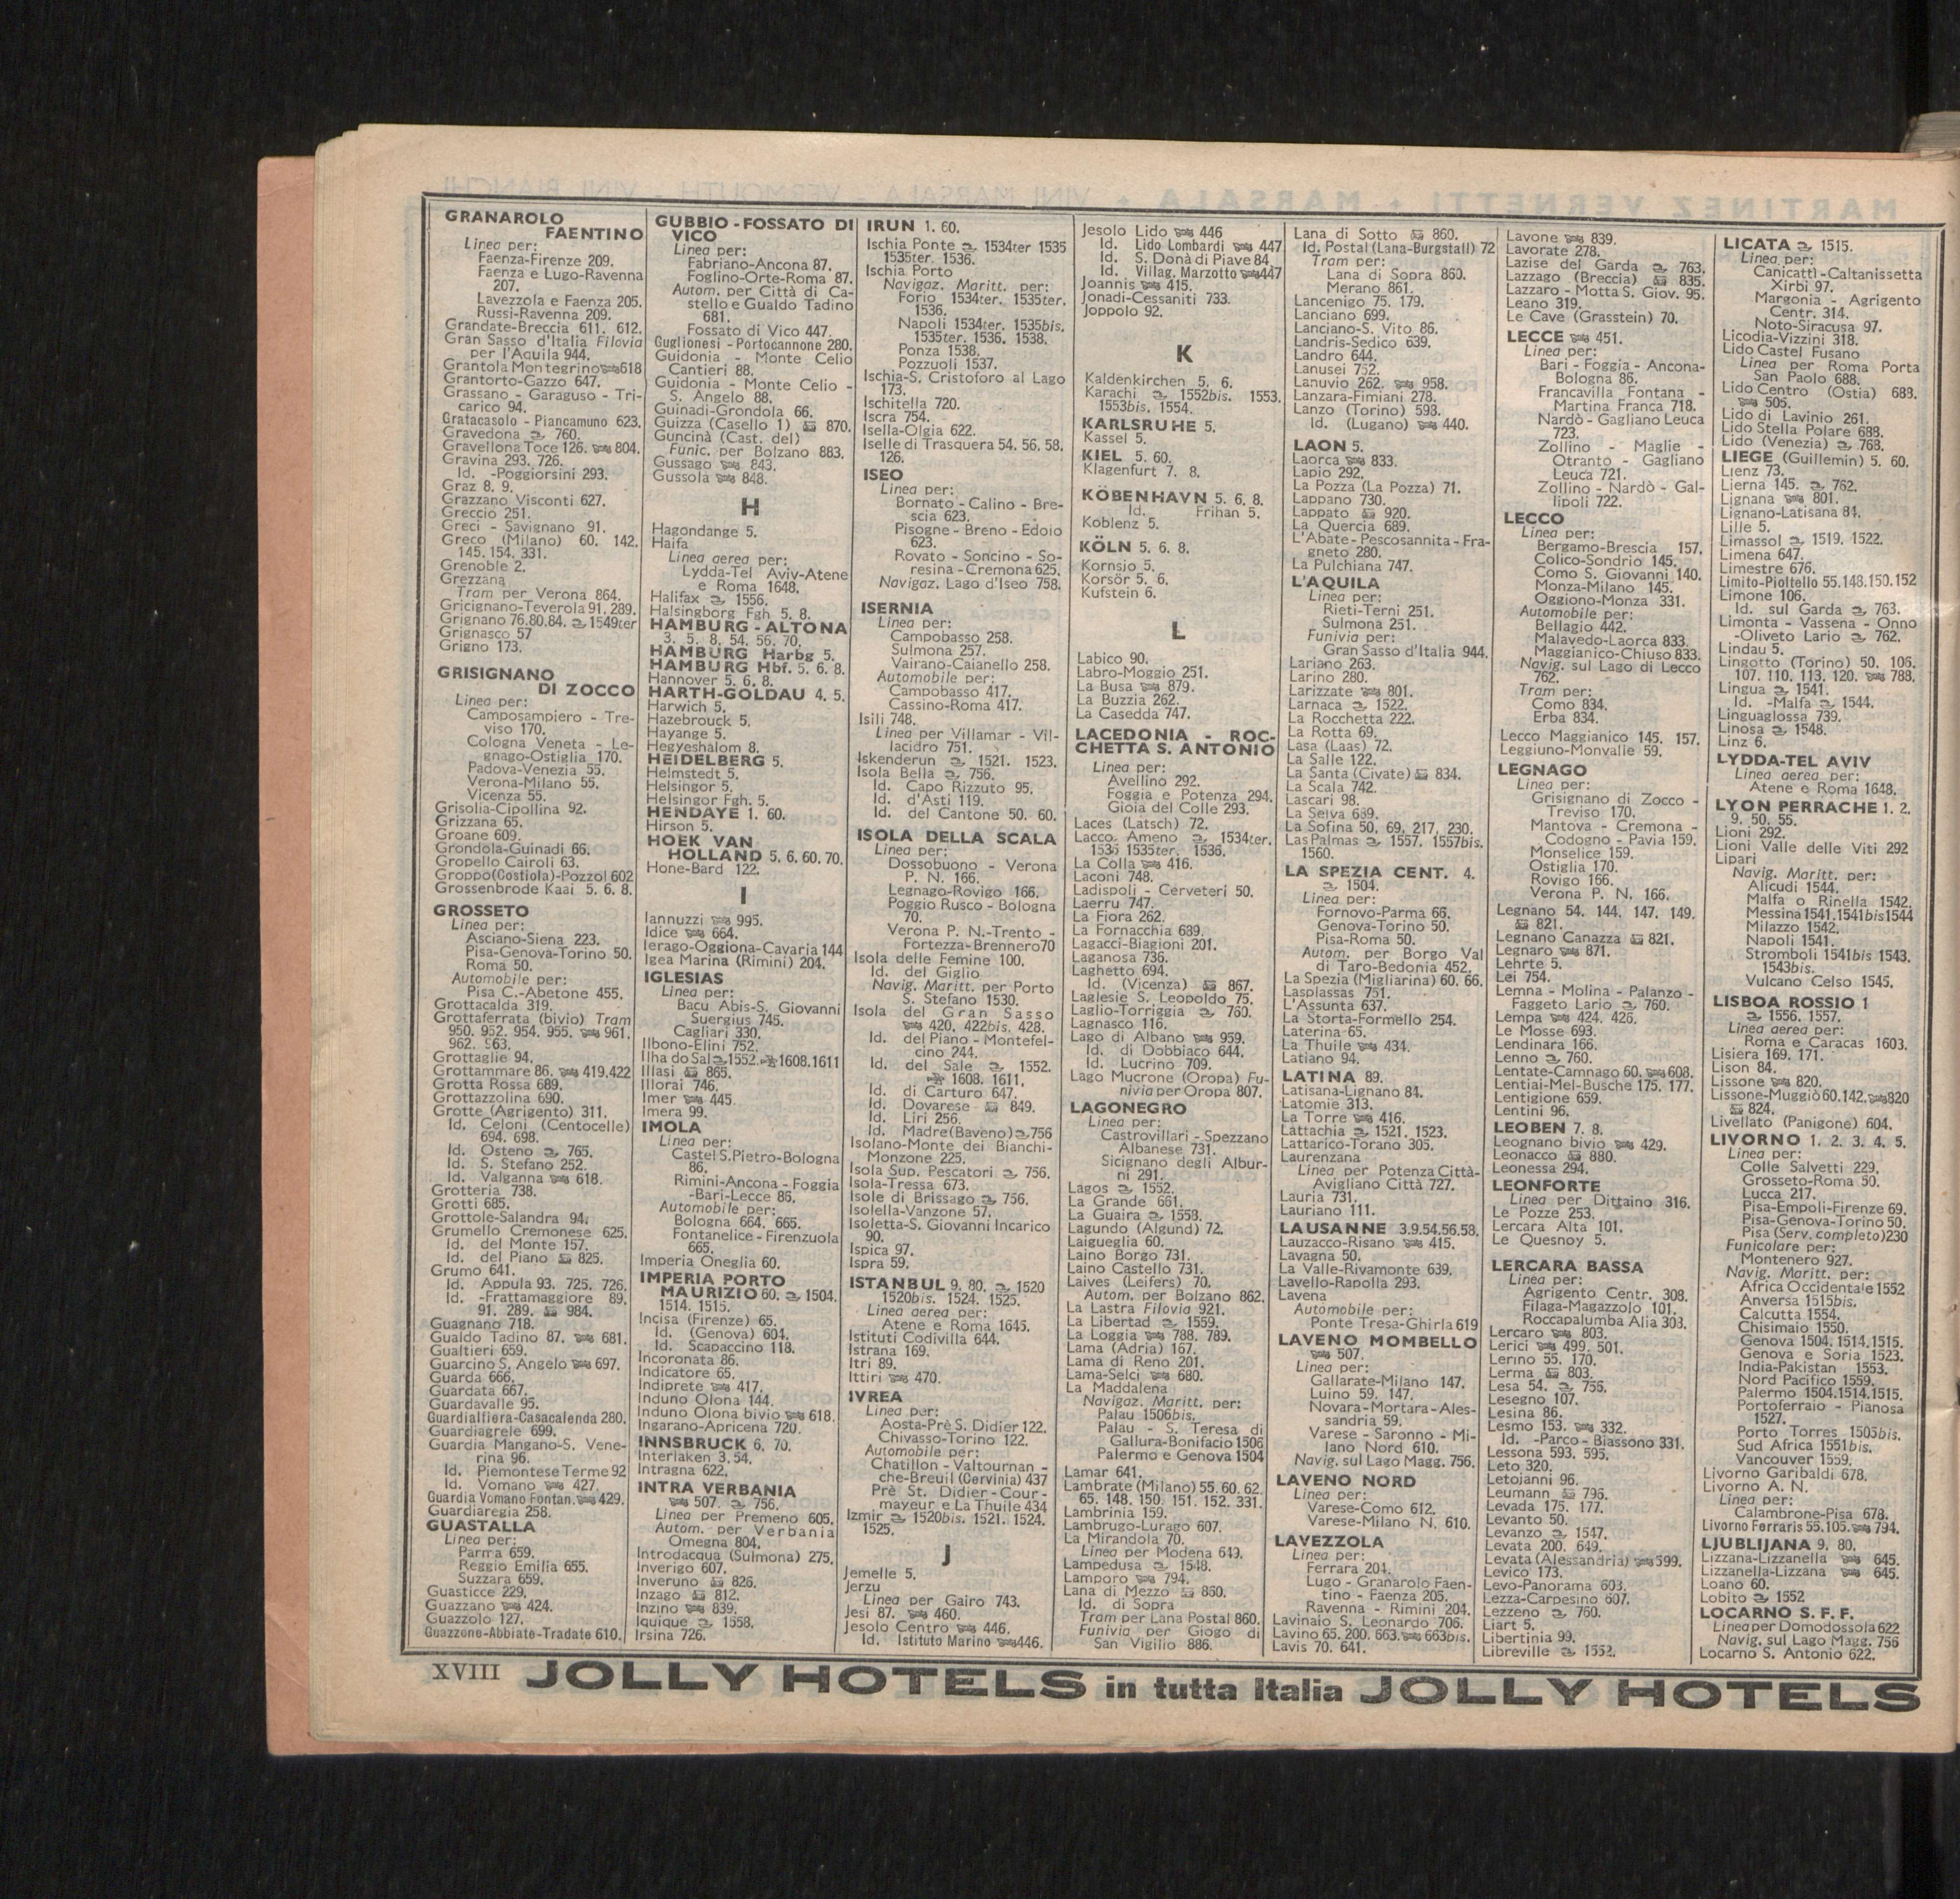 GRANAROLO
FAENTINO
Linea per:
Faenza-Firenze 209.
Faenza e Lugo-Ravenna
207.
Lavezzola e Faenza 205.
Russi-Ravenna 209.
Grandate-Breccia 611. 612.
Gran Sasso d'Italia Filovia
per l'Aquila 944.
Grantola Montegrino 618
Grantorto-Gazzo 647.
Grassano - Garaguso - Tri-
carico 94.
Gratacasolo - Piancamuno 623.
Gravedona 760.
Gravellona Toce 126. 804.
Gravina 293. 726.
Id. -Poggiorsini 293.
Graz 8. 9.
Grazzano Visconti 627.
Greccio 251.
Greci - Savignano 91.
Greco (Milano) 60. 142.
145. 154. 331.
Grenoble 2.
Grezzana
Tram per Verona 864.
Gricignano-Teverola 91. 289.
Grignano 76.80.84. 1549ter
Grignasco 57
Grigno 173.
GRISIGNANO
DI ZOCCO
Linea per:
Camposampiero - Tre-
viso 170.
Cologna Veneta - Le-
gnago-Ostiglia 170.
Padova-Venezia 55.
Verona-Milano 55.
Vicenza 55.
Grisolia-Cipollina 92.
Grizzana 65.
Groane 609.
Grondola-Guinadi 66.
Gropello Cairoli 63.
Groppo(Costiola)-Pozzol 602
Grossenbrode Kaai 5. 6. 8.
GROSSETO
Linea per:
Asciano-Siena 223.
Pisa-Genova-Torino 50.
Roma 50.
Automobile per:
Pisa C.-Abetone 455.
Grottacalda 319.
Grottaferrata (bivio) Tram
950. 952. 954. 955. 961.
962. 963.
Grottaglie 94.
Grottammare 86. 419.422
Grotta Rossa 689.
Grottazzolina 690.
Grotte (Agrigento) 311.
Id. Celoni (Centocelle)
694. 698.
Id. Osteno 765.
Id. S. Stefano 252.
Id. Valganna 618.
Grotteria 738.
Grotti 685.
Grottole-Salandra 94.
Grumello Cremonese 625.
Id. del Monte 157.
Id. del Piano 825.
Grumo 641.
Id. Appula 93. 725. 726.
Id. -Frattamaggiore 89.
91. 289. 984.
Guagnano 718.
Gualdo Tadino 87. 681.
Gualtieri 659.
Guarcino S. Angelo 697.
Guarda 666.
Guardata 667.
Guardavalle 95.
Guardialfiera-Casacalenda 280.
Guardiagrele 699.
Guardia Mangano-S. Vene-
rina 96.
Id. Piemontese Terme 92
Id. Vomano 427.
Guardia Vomano Fontan. 429.
Guardiaregia 258.
GUASTALLA
Linea per:
Parma 659.
Reggio Emilia 655.
Suzzara 659.
Guasticce 229.
Guazzano 424.
Guazzolo 127.
Guazzone-Abbiate-Tradate 610.
GUBBIO - FOSSATO DI
VICO
Linea per:
Fabriano-Ancona 87.
Foglino-Orte-Roma 87.
Autom. per Città di Ca-
stello e Gualdo Tadino
681.
Fossato di Vico 447.
Guglionesi - Portocannone 280.
Guidonia - Monte Celio
Cantieri 88.
Guidonia - Monte Celio -
S. Angelo 88.
Guinadi-Grondola 66.
Guizza (Casello 1) 870.
Guncinà (Cast. del)
Funic. per Bolzano 883.
Gussago 843.
Gussola 848.
H
Hagondange 5.
Haifa
Linea aerea per:
Lydda-Tel Aviv-Atene
e Roma 1648.
Halifax 1556.
Halsingborg Fgh 5. 8.
HAMBURG - ALTONA
3. 5. 8. 54. 56. 70.
HAMBURG Harbg 5.
HAMBURG Hbf. 5. 6. 8.
Hannover 5. 6. 8.
HARTH-GOLDAU 4. 5.
Harwich 5.
Hazebrouck 5.
Hayange 5.
Hegyeshalom 8.
HEIDELBERG 5.
Helmstedt 5.
Helsingor 5.
Helsingor Fgh. 5.
HENDAYE 1. 60.
Hirson 5.
HOEK VAN
HOLLAND 5. 6. 60. 70.
Hone-Bard 122.
I
Iannuzzi 995.
Idice 664.
Ierago-Oggiona-Cavaria 144
Igea Marina (Rimini) 204.
IGLESIAS
Linea per:
Bacu Abis-S. Giovanni
Suergius 745.
Cagliari 330.
Ilbono-Elini 752.
Ilha do Sal 1552. 1608.1611
Illasi 865.
Illorai 746.
Imer 445.
Imera 99.
IMOLA
Linea per:
Castel S.Pietro-Bologna
86.
Rimini-Ancona - Foggia
-Bari-Lecce 86.
Automobile per:
Bologna 664. 665.
Fontanelice - Firenzuola
665.
Imperia Oneglia 60.
IMPERIA PORTO
MAURIZIO 60. 1504.
1514. 1515.
Incisa (Firenze) 65.
Id. (Genova) 604.
Id. Scapaccino 118.
Incoronata 86.
Indicatore 65.
Indiprete 417.
Induno Olona 144.
Induno Olona bivio 618.
Ingarano-Apricena 720.
INNSBRUCK 6. 70.
Interlaken 3. 54.
Intragna 622.
INTRA VERBANIA
507. 756.
Linea per Premeno 605.
Autom. per Verbania
Omegna 804.
Introdacqua (Sulmona) 275.
Inverigo 607.
Inveruno 826.
Inzago 812.
Inzino 839.
Iquique 1558.
Irsina 726.
IRUN 1. 60.
Ischia Ponte 1534ter 1535
1535ter. 1536.
Ischia Porto
Navigaz. Maritt. per:
Forio 1534ter. 1535ter.
1536.
Napoli 1534ter. 1535bis.
1535ter. 1536. 1538.
Ponza 1538.
Pozzuoli 1537.
Ischia-S. Cristoforo al Lago
173.
Ischitella 720.
Iscra 754.
Isella-Olgia 622.
Iselle di Trasquera 54. 56. 58.
126.
ISEO
Linea per:
Bornato - Calino - Bre-
scia 623.
Pisogne - Breno - Edolo
623.
Rovato - Soncino - So-
resina - Cremona 625.
Navigaz. Lago d'Iseo 758.
ISERNIA
Linea per:
Campobasso 258.
Sulmona 257.
Vairano-Caianello 258.
Automobile per:
Campobasso 417.
Cassino-Roma 417.
Isili 748.
Linea per Villamar - Vil-
lacidro 751.
Iskenderun 1521. 1523.
Isola Bella 756.
Id. Capo Rizzuto 95.
Id. d'Asti 119.
Id. del Cantone 50. 60.
ISOLA DELLA SCALA
Linea per:
Dossobuono - Verona
P. N. 166.
Legnago-Rovigo 166.
Poggio Rusco - Bologna
70.
Verona P. N.-Trento -
Fortezza-Brennero70
Isola delle Femine 100.
Id. del Giglio
Navig. Maritt. per Porto
S. Stefano 1530.
Isola del Gran Sasso
420. 422bis. 428.
Id. del Piano - Montefel-
cino 244.
Id. del Sale 1552.
1608. 1611.
Id. di Carturo 647.
Id. Dovarese 849.
Id. Liri 256.
Id. Madre(Baveno) 756
Isolano-Monte dei Bianchi-
Monzone 225.
Isola Sup. Pescatori 756.
Isola-Tressa 673.
Isole di Brissago 756.
Isolella-Vanzone 57.
Isoletta-S. Giovanni Incarico
90.
Ispica 97.
Ispra 59.
ISTANBUL 9. 80. 1520
1520bis. 1524. 1525.
Linea aerea per:
Atene e Roma 1645.
Istituti Codivilla 644.
Istrana 169.
Itri 89.
Ittiri 470.
IVREA
Linea per:
Aosta-Prè S. Didier 122.
Chivasso-Torino 122.
Automobile per:
Chatillon - Valtournan -
che-Breuil (Cervinia) 437
Prè St. Didier - Cour -
mayeur e La Thuile 434
Izmir 1520bis. 1521. 1524.
1525.
J
Jemelle 5.
Jerzu
Linea per Gairo 743.
Jesi 87. 460.
Jesolo Centro 446.
Id. Istituto Marino 446.
Jesolo Lido 446
Id. Lido Lombardi 447
Id. S. Donà di Piave 84
Id. Villag. Marzotto 447
Joannis 415.
Jonadi-Cessaniti 733.
Joppolo 92.
K
Kaldenkirchen 5. 6.
Karachi 1552bis. 1553.
1553bis. 1554.
KARLSRUHE 5.
Kassel 5.
KIEL 5. 60.
Klagenfurt 7. 8.
KÖBENHAVN 5. 6. 8.
Id. Frihan 5.
Koblenz 5.
KÖLN 5. 6. 8.
Kornsjo 5.
Korsör 5. 6.
Kufstein 6.
L
Labico 90.
Labro-Moggio 251.
La Busa 879.
La Buzzia 262.
La Casedda 747.
LACEDONIA - ROC-
CHETTA S. ANTONIO
Linea per:
Avellino 292.
Foggia e Potenza 294.
Gioia del Colle 293.
Laces (Latsch) 72.
Lacco Ameno 1534ter.
1535 1535ter. 1536.
La Colla 416.
Laconi 748.
Ladispoli - Cerveteri 50.
Laerru 747.
La Fiora 262.
La Fornacchia 689.
Lagacci-Biagioni 201.
Laganosa 736.
Laghetto 694.
Id. (Vicenza) 867.
Laglesie S. Leopoldo 75.
Laglio-Torriggia 760.
Lagnasco 116.
Lago di Albano 959.
Id. di Dobbiaco 644.
Id. Lucrino 709.
Lago Mucrone (Oropa) Fu-
nivia per Oropa 807.
LAGONEGRO
Linea per:
Castrovillari - Spezzano
Albanese 731.
Sicignano degli Albur-
ni 291.
Lagos 1552.
La Grande 661.
La Guaira 1558.
Lagundo (Algund) 72.
Laigueglia 60.
Laino Borgo 731.
Laino Castello 731.
Laives (Leifers) 70.
Autom. per Bolzano 862.
La Lastra Filovia 921.
La Libertad 1559.
La Loggia 788. 789.
Lama (Adria) 167.
Lama di Reno 201.
Lama-Selci 680.
La Maddalena
Navigaz. Maritt. per:
Palau 1506bis.
Palau - S. Teresa di
Gallura-Bonifacio 1506
Palermo e Genova 1504
Lamar 641.
Lambrate (Milano) 55. 60. 62.
65. 148. 150. 151. 152. 331.
Lambrinia 159.
Lambrugo-Lurago 607.
La Mirandola 70.
Linea per Modena 649.
Lampedusa 1548.
Lamporo 794.
Lana di Mezzo 860.
Id. di Sopra
Tram per Lana Postal 860.
Funivia per Giogo di
San Vigilio 886.
Lana di Sotto 860.
Id. Postal (Lana-Burgstall) 72
Tram per:
Lana di Sopra 860.
Merano 861.
Lancenigo 75. 179.
Lanciano 699.
Lanciano-S. Vito 86.
Landris-Sedico 639.
Landro 644.
Lanusei 752.
Lanuvio 262. 958.
Lanzara-Fimiani 278.
Lanzo (Torino) 593.
Id. (Lugano) 440.
LAON 5.
Laorca 833.
Lapio 292.
La Pozza (La Pozza) 71.
Lappano 730.
Lappato 920.
La Quercia 689.
L'Abate - Pescosannita - Fra-
gneto 280.
La Pulchiana 747.
L'AQUILA
Linea per:
Rieti-Terni 251.
Sulmona 251.
Funivia per:
Gran Sasso d'Italia 944.
Lariano 263.
Larino 280.
Larizzate 801.
Larnaca 1522.
La Rocchetta 222.
La Rotta 69.
Lasa (Laas) 72.
La Salle 122.
La Santa (Civate) 834.
La Scala 742.
Lascari 98.
La Selva 689.
La Sofina 50. 69. 217. 230.
Las Palmas 1557. 1557bis.
1560.
LA SPEZIA CENT. 4.
1504.
Linea per:
Fornovo-Parma 66.
Genova-Torino 50.
Pisa-Roma 50.
Autom. per Borgo Val
di Taro-Bedonia 452.
La Spezia (Migliarina) 60. 66.
Lasplassas 751.
L'Assunta 637.
La Storta-Formello 254.
Laterina 65.
La Thuile 434.
Latiano 94.
LATINA 89.
Latisana-Lignano 84.
Latomie 313.
La Torre 416.
Lattachia 1521. 1523.
Lattarico-Torano 305.
Laurenzana
Linea per Potenza Città-
Avigliano Città 727.
Lauria 731.
Lauriano 111.
LAUSANNE 3.9.54.56.58.
Lauzacco-Risano 415.
Lavagna 50.
La Valle-Rivamonte 639.
Lavello-Rapolla 293.
Lavena
Automobile per:
Ponte Tresa-Ghirla 619
LAVENO MOMBELLO
507.
Linea per:
Gallarate-Milano 147.
Luino 59. 147.
Novara-Mortara-Ales-
sandria 59.
Varese - Saronno - Mi-
lano Nord 610.
Navig. sul Lago Magg. 756.
LAVENO NORD
Linea per:
Varese-Como 612.
Varese-Milano N. 610.
LAVEZZOLA
Linea per:
Ferrara 204.
Lugo - Granarolo Faen-
tino - Faenza 205.
Ravenna - Rimini 204.
Lavinaio S. Leonardo 706.
Lavino 65. 200. 663. 663bis.
Lavis 70. 641.
Lavone 839.
Lavorate 278.
Lazise del Garda 763.
Lazzago (Breccia) 835.
Lazzaro - Motta S. Giov. 95.
Leano 319.
Le Cave (Grasstein) 70.
LECCE 451.
Linea per:
Bari - Foggia - Ancona-
Bologna 86.
Francavilla Fontana -
Martina Franca 718.
Nardò - Gagliano Leuca
723.
Zollino - Maglie -
Otranto - Gagliano
Leuca 721.
Zollino - Nardò - Gal-
lipoli 722.
LECCO
Linea per:
Bergamo-Brescia 157.
Colico-Sondrio 145.
Como S. Giovanni 140.
Monza-Milano 145.
Oggiono-Monza 331.
Automobile per:
Bellagio 442.
Malavedo-Laorca 833.
Maggianico-Chiuso 833.
Navig. sul Lago di Lecco
762.
Tram per:
Como 834.
Erba 834.
Lecco Maggianico 145. 157.
Leggiuno-Monvalle 59.
LEGNAGO
Linea per:
Grisignano di Zocco -
Treviso 170.
Mantova - Cremona -
Codogno - Pavia 159.
Monselice 159.
Ostiglia 170.
Rovigo 166.
Verona P. N. 166.
Legnano 54. 144. 147. 149.
821.
Legnano Canazza 821.
Legnaro 871.
Lehrte 5.
Lei 754.
Lemna - Molina - Palanzo -
Faggeto Lario 760.
Lempa 424. 426.
Le Mosse 693.
Lendinara 166.
Lenno 760.
Lentate-Camnago 60. 608.
Lentiai-Mel-Busche 175. 177.
Lentigione 659.
Lentini 96.
LEOBEN 7. 8.
Leognano bivio 429.
Leonacco 880.
Leonessa 294.
LEONFORTE
Linea per Dittaino 316.
Le Pozze 253.
Lercara Alta 101.
Le Quesnoy 5.
LERCARA BASSA
Linea per:
Agrigento Centr. 308.
Filaga-Magazzolo 101.
Roccapalumba Alia 303.
Lercaro 803.
Lerici 499. 501.
Lerino 55. 170.
Lerma 803.
Lesa 54. 756.
Lesegno 107.
Lesina 86.
Lesmo 153. 332.
Id. -Parco - Biassono 331.
Lessona 593. 595.
Leto 320.
Letojanni 96.
Leumann 796.
Levada 175. 177.
Levanto 50.
Levanzo 1547.
Levata 200. 649.
Levata (Alessandria) 599.
Levico 173.
Levo-Panorama 603.
Lezza-Carpesino 607.
Lezzeno 760.
Liart 5.
Libertinia 99.
Libreville 1552.
LICATA 1515.
Linea per:
Canicattì-Caltanissetta
Xirbi 97.
Margonia - Agrigento
Centr. 314.
Noto-Siracusa 97.
Licodia-Vizzini 318.
Lido Castel Fusano
Linea per Roma Porta
San Paolo 688.
Lido Centro (Ostia) 688.
505.
Lido di Lavinio 261.
Lido Stella Polare 688.
Lido (Venezia) 768.
LIEGE (Guillemin) 5. 60.
Lienz 73.
Lierna 145. 762.
Lignana 801.
Lignano-Latisana 84.
Lille 5.
Limassol 1519. 1522.
Limena 647.
Limestre 676.
Limito-Pioltello 55.148.150.152
Limone 106.
Id. sul Garda 763.
Limonta - Vassena - Onno
-Oliveto Lario 762.
Lindau 5.
Lingotto (Torino) 50. 106.
107. 110. 113. 120. 788.
Lingua 1541.
Id. -Malfa 1544.
Linguaglossa 739.
Linosa 1548.
Linz 6.
LYDDA-TEL AVIV
Linea aerea per:
Atene e Roma 1648.
LYON PERRACHE 1. 2.
9. 50. 55.
Lioni 292.
Lioni Valle delle Viti 292
Lipari
Navig. Maritt. per:
Alicudi 1544.
Malfa o Rinella 1542.
Messina 1541.1541bis1544
Milazzo 1542.
Napoli 1541.
Stromboli 1541bis 1543.
1543bis.
Vulcano Celso 1545.
LISBOA ROSSIO 1
1556. 1557.
Linea aerea per:
Roma e Caracas 1603.
Lisiera 169. 171.
Lison 84.
Lissone 820.
Lissone-Muggiò 60.142. 820
824.
Livellato (Panigone) 604.
LIVORNO 1. 2. 3. 4. 5.
Linea per:
Colle Salvetti 229.
Grosseto-Roma 50.
Lucca 217.
Pisa-Empoli-Firenze 69.
Pisa-Genova-Torino 50.
Pisa (Serv. completo)230
Funicolare per:
Montenero 927.
Navig. Maritt. per:
Africa Occidentale 1552
Anversa 1515bis.
Calcutta 1554.
Chisimaio 1550.
Genova 1504.1514.1515.
Genova e Soria 1523.
India-Pakistan 1553.
Nord Pacifico 1559.
Palermo 1504.1514.1515.
Portoferraio - Pianosa
1527.
Porto Torres 1505bis.
Sud Africa 1551bis.
Vancouver 1559.
Livorno Garibaldi 678.
Livorno A. N.
Linea per:
Calambrone-Pisa 678.
Livorno Ferraris 55.105. 794.
LJUBLIJANA 9. 80.
Lizzana-Lizzanella 645.
Lizzanella-Lizzana 645.
Loano 60.
Lobito 1552
LOCARNO S. F. F.
Linea per Domodossola 622
Navig. sul Lago Magg. 756
Locarno S. Antonio 622.
XVIII JOLLY HOTELS in tutta Italia JOLLY HOTELS